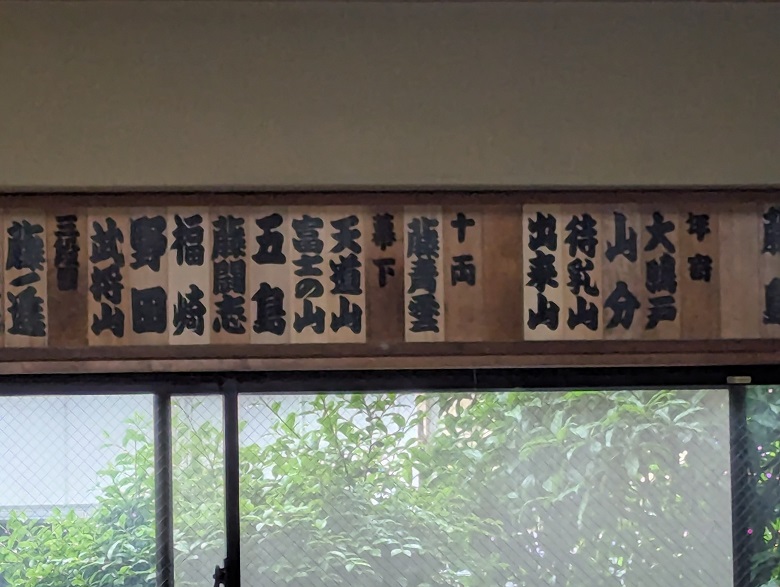 年寄
大鵬戸
山分
待乳山
出来山
十両
藤青雲
幕下
天道山
富士の山
五島
藤闘志
福崎
野田
武将山
三段目